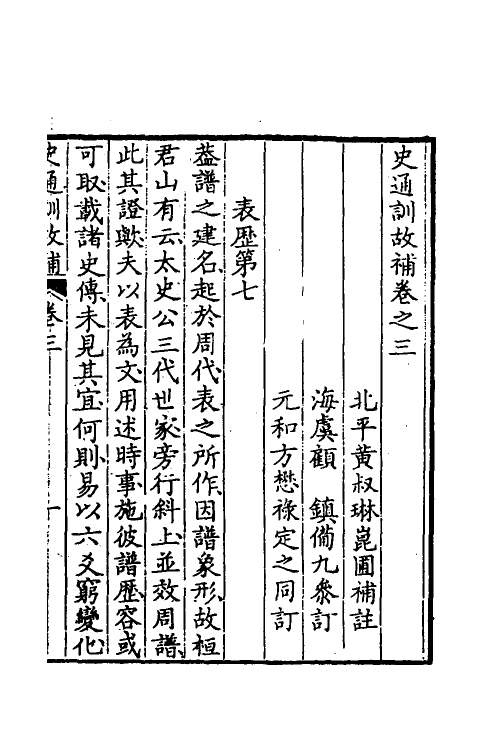 史通訓故補卷之三
北平黃叔琳崑圃補註
海虞顧　鎮備九叅訂
元和方懋祿定之同訂
表歷第七
葢譜之建名起於周代表之所作因譜象形故桓
君山有云太史公三代世家旁行斜上並效周譜
此其證歟夫以表為文用述時事施彼譜歷容或
可取載諸史傳未見其宜何則易以六爻窮變化
史通訓故補　卷三　一